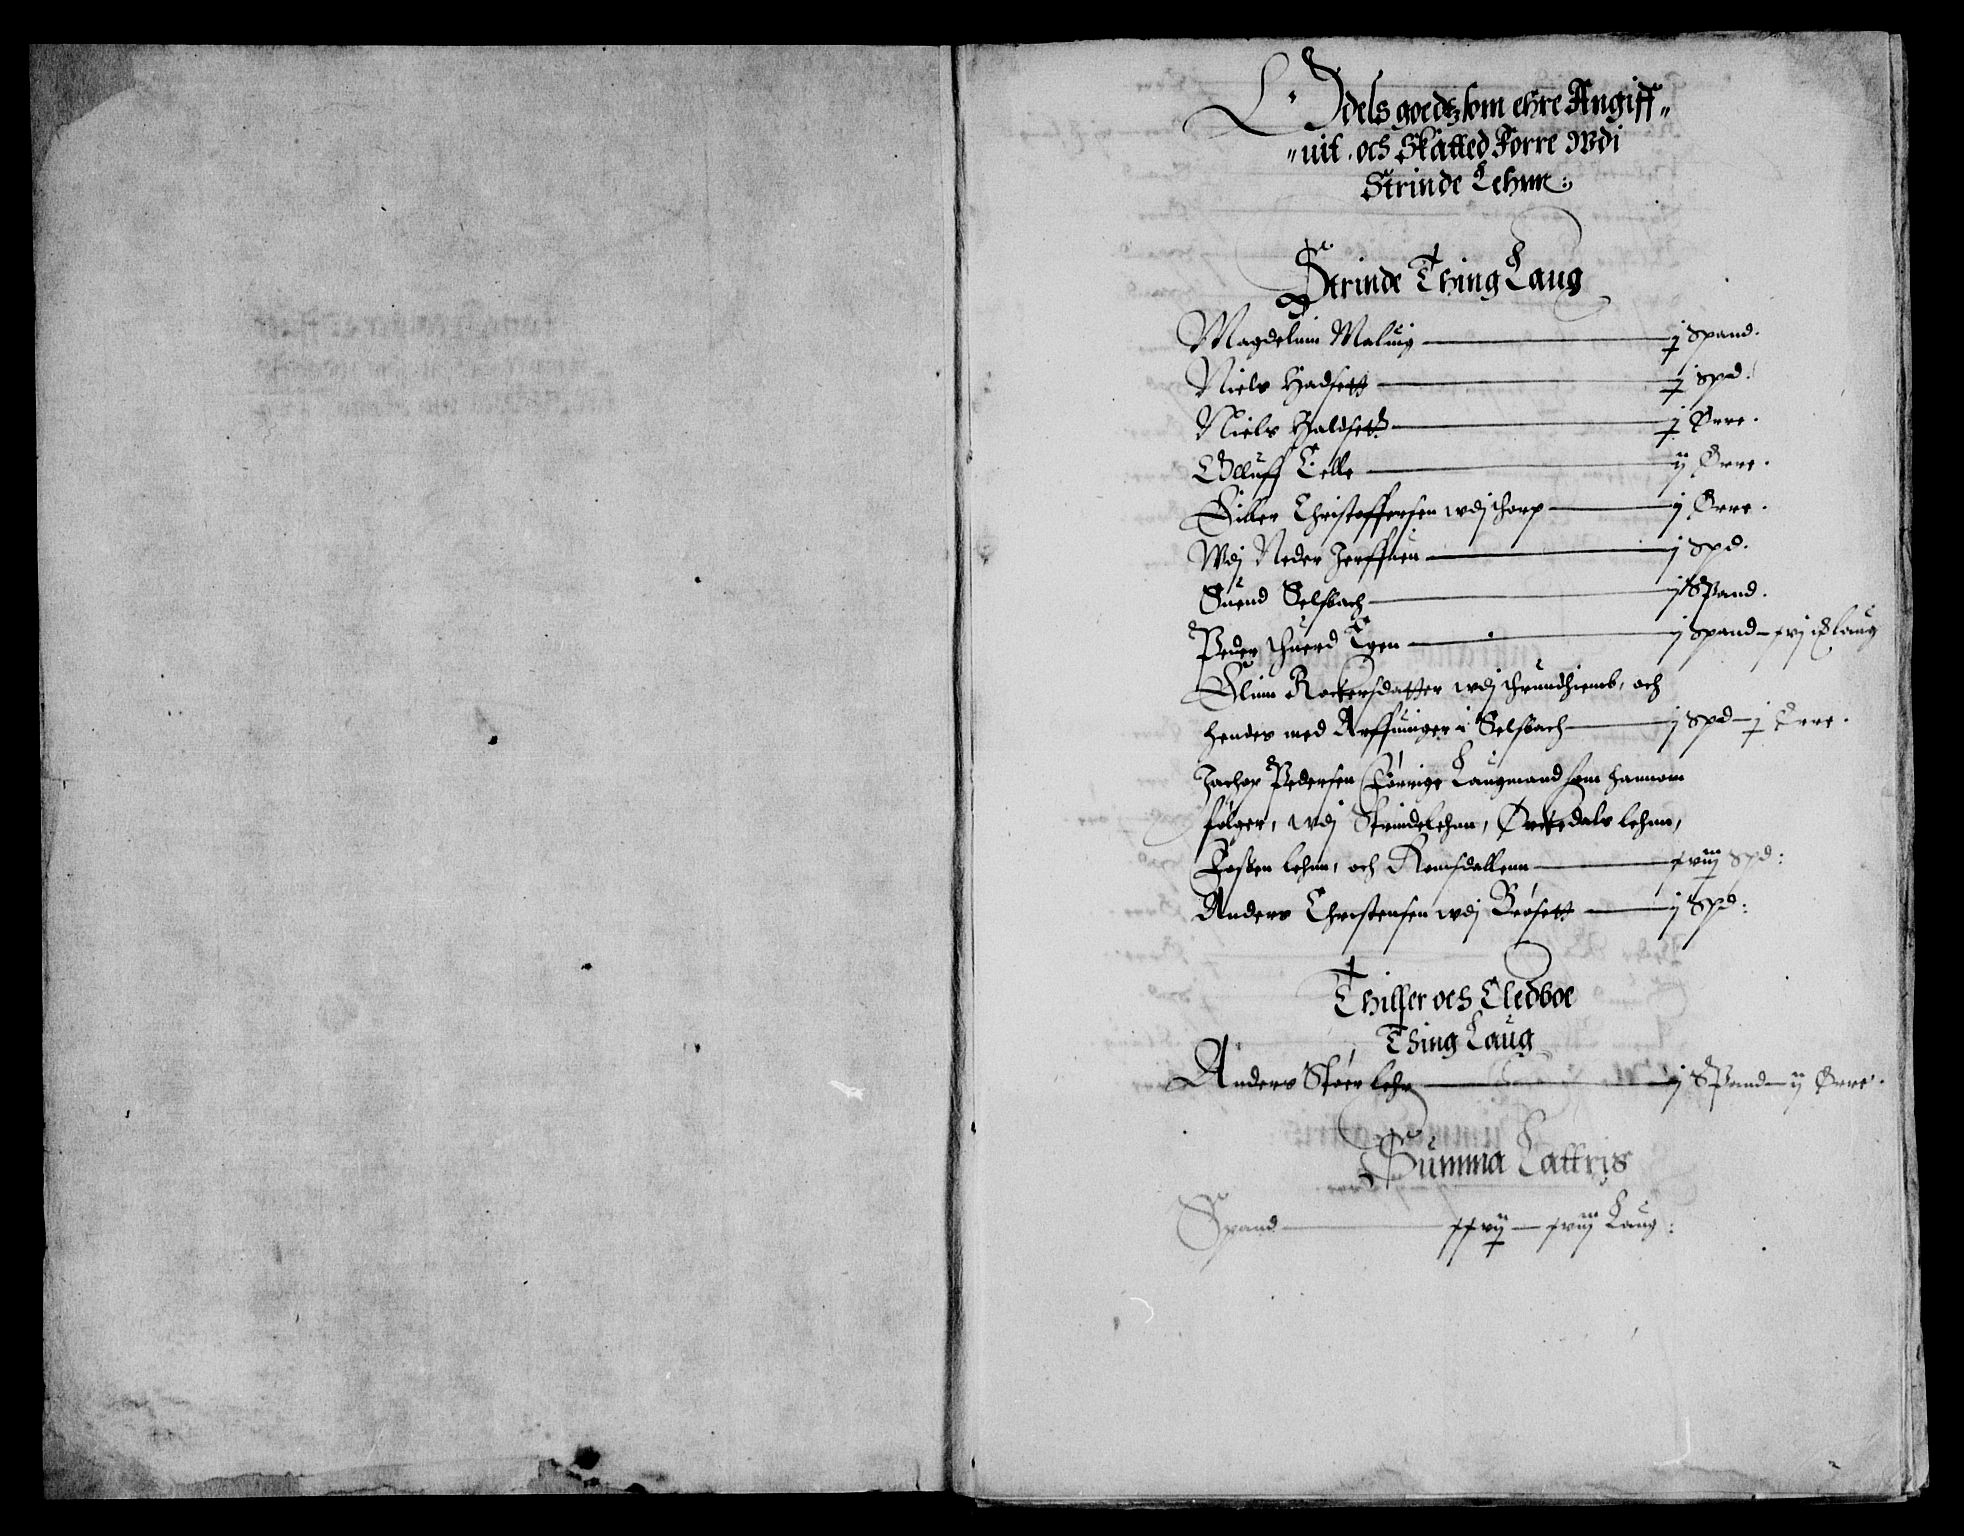 Odels goeds som ehre Angiff„
„uit och Skatted Forre Wdi
Strinde Lehnn:
Strinde Thing Laug
Magdelini Maluig — j Spand.
Niels Hadsett — j Spd.
Niels Haldsett — j Ørre.
Olluff Telle — ij Ørre.
Eiller Christoffersen wdj thorp — j Ørre.
Wdj Neder Jerffuen — j Spd.
Suend Selsbach — j Spand.
Peder — j Spand — xvj Øslaug
Elinn Rockersdatter wdj thrundhiemb, och
hendes med Arffuinger i Selsbach — j Spd — j Ørre.
Jachop Pedersen Forrige Laugmand som hannom
følger, wdj Strindelehnn, Orckedals lehnn,
Fosken lehnn, och Romsdallenn — xviij Spd:
Anders Christensen wdj Brøsett — j Spd:
Thiller och Cledboe
Thing Laug
Anders Skøer lehr — j Spand — ij Ørre.
Summa Lattris
Spand — xxvij — xviij Laug: